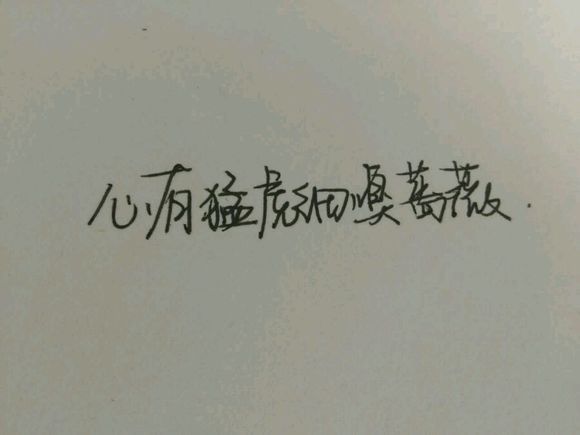 心有猛虎细嗅蔷薇.